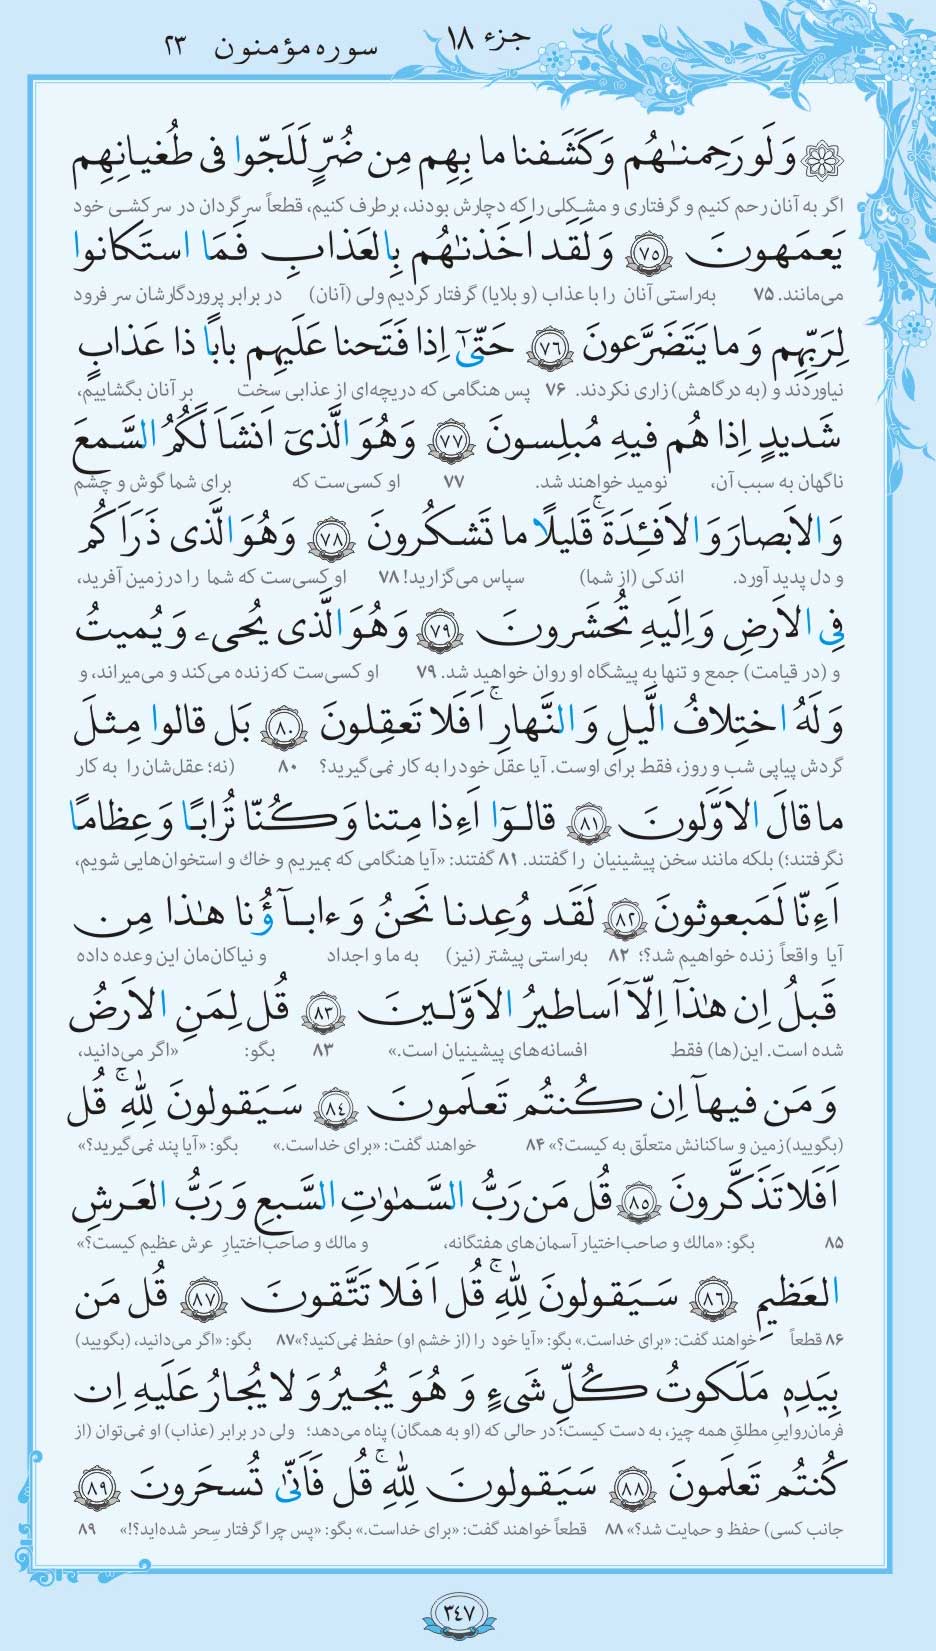 جزء ۱۸ سوره مؤمنون ۲۳
وَلَو رَحِمنـٰهُم وَكَشَفنا ما بِهِم مِن ضُرٍّ لَلَجّوا فی طُغيانِهِم
اگر به آنان رحم کنیم و گرفتاری و مشکلی را که دچارش بودند، برطرف کنیم، قطعاً سرگردان در سرکشی خود
يَعمَهونَ ﴿۷۵﴾ وَلَقَد اَخَذنـٰهُم بِالعَذابِ فَمَا استَكانوا
می‌مانند. ۷۵ به‌راستی آنان را با عذاب (و بلایا) گرفتار کردیم ولی (آنان) در برابر پروردگارشان سر فرود
لِرَبِّهِم وَ ما يَتَضَرَّعونَ ﴿۷۶﴾ حَتّىٰٓ اِذا فَتَحنا عَلَيهِم بابًا ذا عَذابٍ
نیاوردند و (به درگاهش) زاری نکردند. ۷۶ پس هنگامی که دریچه‌ای از عذابی سخت بر آنان بگشاییم،
شَديدٍ اِذا هُم فيهِ مُبلِسونَ ﴿۷۷﴾ وَهُوَ الَّذیٓ اَنشَاَ لَكُمُ السَّمعَ
ناگهان به سبب آن، نومید خواهند شد. ۷۷ او کسی‌ست که برای شما گوش و چشم
وَالاَبصارَ وَالاَفـِٔدَةَ ۚ قَليلًا ما تَشكُرونَ ﴿۷۸﴾ وَهُوَ الَّذی ذَرَاَكُم
و دل پدید آورد. اندکی (از شما) سپاس می‌گزارید! ۷۸ او کسی‌ست که شما را در زمین آفرید،
فِی الاَرضِ وَاِلَيهِ تُحشَرونَ ﴿۷۹﴾ وَهُوَ الَّذی يُحیۦ وَ يُميتُ
و (در قیامت) جمع و تنها به پیشگاه او روان خواهید شد. ۷۹ او کسی‌ست که زنده می‌کند و می‌میراند، و
وَلَهُ اختِلافُ الَّيلِ وَ النَّهارِ ۚ اَفَلا تَعقِلونَ ﴿۸۰﴾ بَل قالوا مِثلَ
گردش پیاپی شب و روز، فقط برای اوست. آیا عقل خود را به کار نمی‌گیرید؟ ۸۰ (نه؛ عقل‌شان را به کار
ما قالَ الاَوَّلونَ ﴿۸۱﴾ قالـوٓا اَءِذا مِتنا وَ كُنّا تُرابًا وَ عِظامًا
نگرفتند؛) بلکه مانند سخن پیشینیان را گفتند. ۸۱ گفتند: «آیا هنگامی که بمیریم و خاك و استخوان‌هایی شویم،
اَءِنّا لَمَبعوثونَ ﴿۸۲﴾ لَقَد وُعِدنا نَحنُ وَ ءابآؤُنا هـٰذا مِن
آیا واقعاً زنده خواهیم شد؟! ۸۲ به‌راستی پیشتر (نیز) به ما و اجداد و نیاکان‌مان این وعده داده
قَبلُ اِن هـٰذآ اِلّآ اَساطيرُ الاَوَّلينَ ﴿۸۳﴾ قُل لِمَنِ الاَرضُ
شده است. این(ها) فقط افسانه‌های پیشینیان است.» ۸۳ بگو: «اگر می‌دانید،
وَ مَن فيهآ اِن كُنتُم تَعلَمونَ ﴿۸۴﴾ سَيَقولونَ لِلّٰهِ ۚ قُل
(بگویید) زمین و ساکنانش متعلّق به کیست؟» ۸۴ خواهند گفت: «برای خداست.» بگو: «آیا پند نمی‌گیرید؟»
اَفَلا تَذَكَّرونَ ﴿۸۵﴾ قُل مَن رَبُّ السَّمـٰوٰتِ السَّبعِ وَ رَبُّ العَرشِ
۸۵ بگو: «مالك و صاحب‌اختیار آسمان‌های هفتگانه، و مالك و صاحب‌اختیارِ عرش عظیم کیست؟»
العَظيمِ ﴿۸۶﴾ سَيَقولونَ لِلّٰهِ ۚ قُل اَفَلا تَتَّقونَ ﴿۸۷﴾ قُل مَن
۸۶ قطعاً خواهند گفت: «برای خداست.» بگو: «آیا خود را (از خشم او) حفظ نمی‌کنید؟» ۸۷ بگو: «اگر می‌دانید، (بگویید)
بِيَدِهٖ مَلَكوتُ كُلِّ شَیءٍ وَ هُوَ يُجيرُ وَ لا يُجارُ عَلَيهِ اِن
فرمان‌رواییِ مطلقِ همه چیز، به دست کیست؛ در حالی که (او به همگان) پناه می‌دهد؛ ولی در برابر (عذاب) او نمی‌توان (از
كُنتُم تَعلَمونَ ﴿۸۸﴾ سَيَقولونَ لِلّٰهِ ۚ قُل فَاَنّىٰ تُسحَرونَ ﴿۸۹﴾
جانب کسی) حفظ و حمایت شد؟» ۸۸ قطعاً خواهند گفت: «برای خداست.» بگو: «پس چرا گرفتار سِحر شده‌اید؟!» ۸۹
۳۴۷